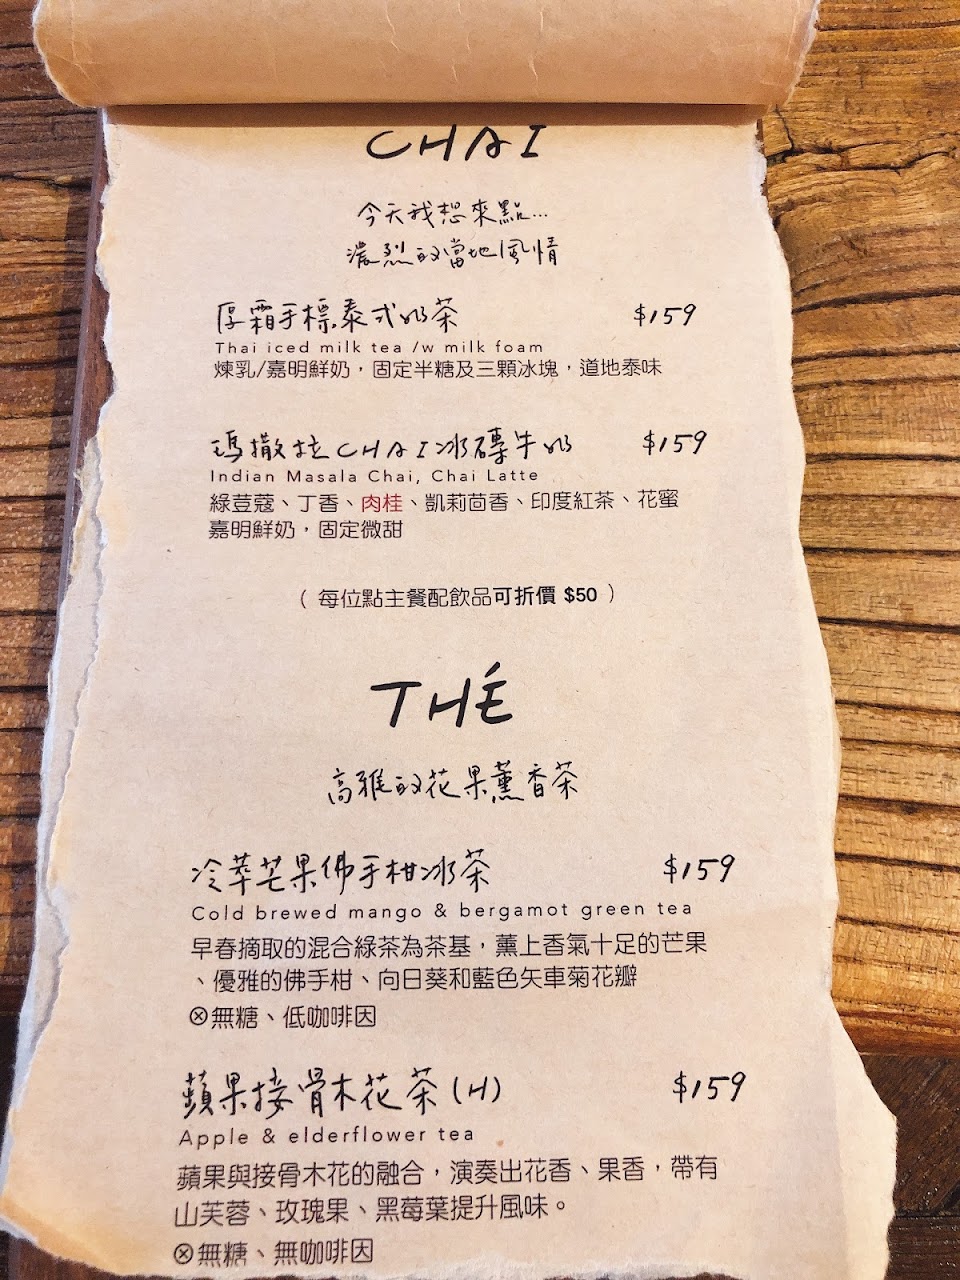 CHAI
今天我想來點...
濃烈的當地風情
厚霜手標泰式奶茶 $159
Thai iced milk tea /w milk foam
煉乳/嘉明鮮奶，固定半糖及三顆冰塊，道地泰味
瑪撒拉CHAI冰磚牛奶 $159
Indian Masala Chai, Chai Latte
綠荳蔻、丁香、肉桂、凱莉茴香、印度紅茶、花蜜
嘉明鮮奶，固定微甜
（ 每位點主餐配飲品可折價 $50 ）
THÉ
高雅的花果薰香茶
冷萃芒果佛手柑冰茶 $159
Cold brewed mango & bergamot green tea
早春摘取的混合綠茶為茶基，薰上香氣十足的芒果
、優雅的佛手柑、向日葵和藍色矢車菊花瓣
⊗無糖、低咖啡因
蘋果接骨木花茶(H) $159
Apple & elderflower tea
蘋果與接骨木花的融合，演奏出花香、果香，帶有
山芙蓉、玫瑰果、黑莓葉提升風味。
⊗無糖、無咖啡因